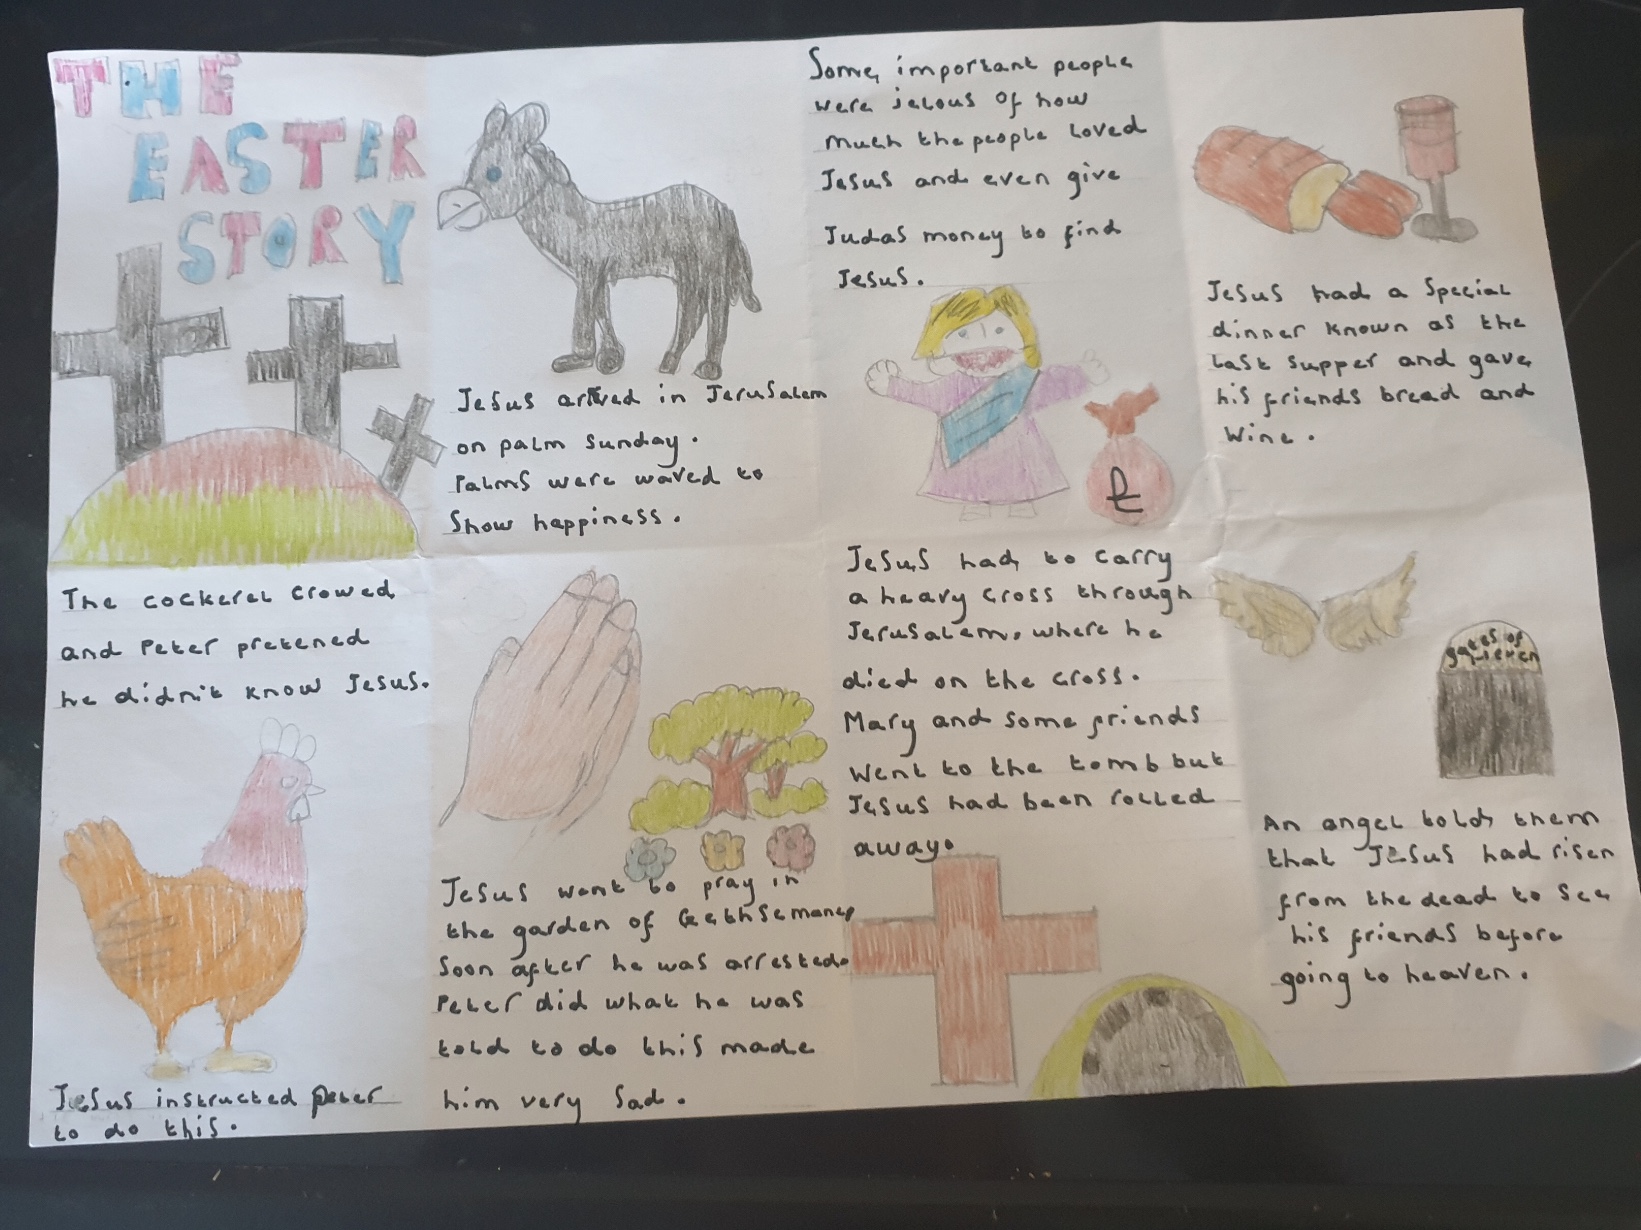 THE
EASTER
STORY
Jesus arrived in Jerusalem
on palm Sunday.
Palms were waved to
Show happiness.
Some important people
were jelous of how
much the people loved
Jesus and even give
Judas money to find
Jesus.
£
Jesus had a Special
dinner known as the
last supper and gave
his friends bread and
wine.
The cockerel crowed
and Peter pretened
he didn't know Jesus.
Jesus instructed peter
to do this.
Jesus went to pray in
the garden of Gethsemaney
Soon after he was arrested.
Peter did what he was
told to do this made
him very sad.
Jesus had to carry
a heavy cross through
Jerusalem, where he
died on the cross.
Mary and some friends
went to the tomb but
Jesus had been rolled
away.
gates of
An angel tolds them
that Jesus had risen
from the dead to see
his friends before
going to heaven.